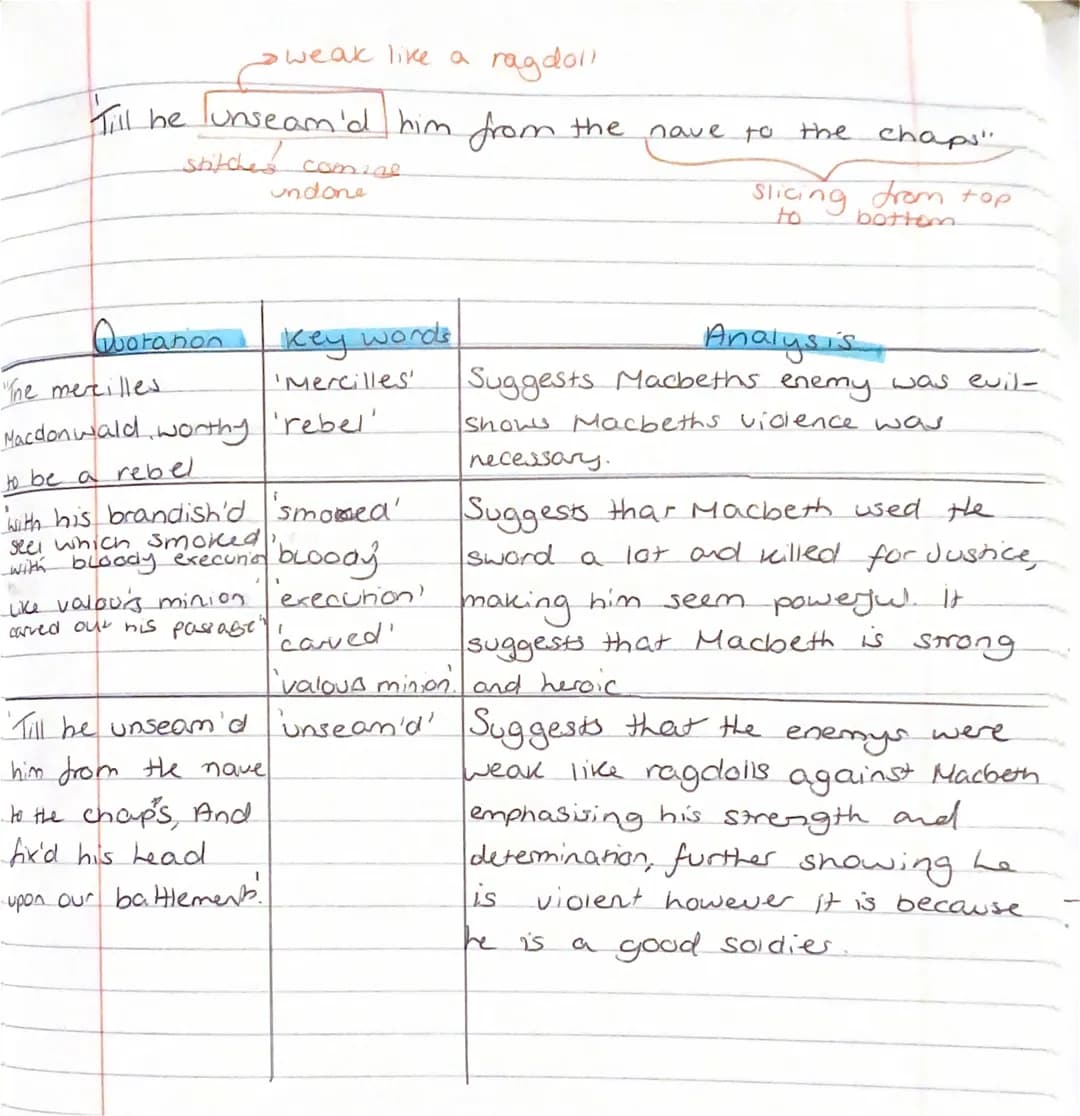 →weak like a ragdoll
'Till he unseam'd him from the nave to the chaps"
stitches coming
undone
slicing from top
to bottom
Quotation Key words Analysis
"The mercilles
Macdonwald, worthy
to be a rebel
'Mercilles'
'rebel'
Suggests Macbeths enemy was evil-
shows Macbeths violence was
necessary.
'with his brandish'd
steel which smoked
with bloody execution
like valour's minion
carved out his passage"
'smoked'
'bloody'
'execution'
'carved'
'valous minion'.
Suggests that Macbeth used the
sword a lot and killed for Justice,
making him seem powerful. It
suggests that Macbeth is strong
and heroic
'Till he unseam'd
him from the nave
to the chap's, And
fix'd his head
upon our battlements'.
'unseam'd'
Suggests that the enemys were
weak like ragdolls against Macbeth
emphasising his strength and
determination, further showing he
is violent however it is because
he is a good soldier.